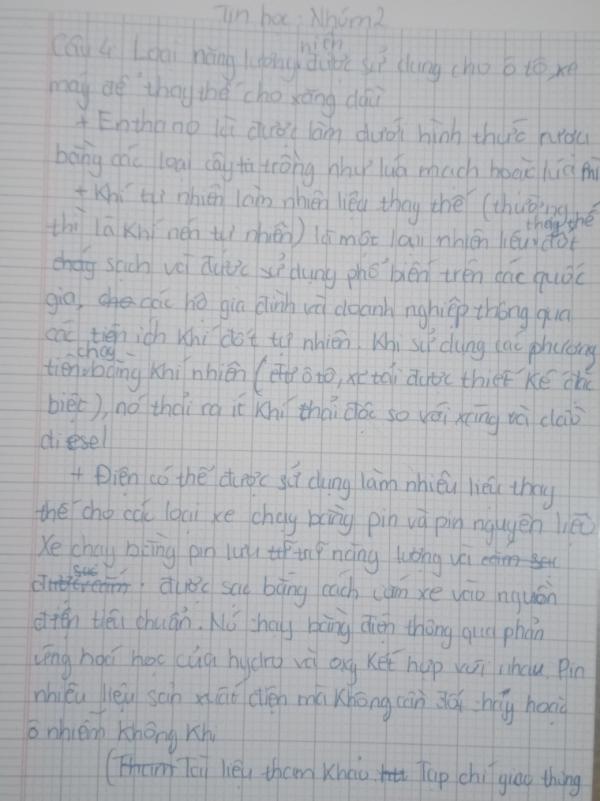 Tin học: Nhóm 2
Câu 4 Loại năng lượng nhiên được sử dụng cho ô tô, xe
máy để thay thế cho xăng dầu
+ Enthanol là được làm dưới hình thức rượu
bằng các loại cây ta trồng như lúa mạch hoặc lúa mì
+ Khí tự nhiên làm nhiên liệu thay thế (thường
thì là khí nén tự nhiên) là một loại nhiên liệu thay thế đốt
cháy sạch và được sử dụng phổ biến trên các quốc
gia, cho các hộ gia đình và doanh nghiệp thông qua
các tiện ích khí đốt tự nhiên. Khi sử dụng các phương
tiện chạy bằng khí nhiên (ôtô, xe tải được thiết kế đặc
biệt), nó thải ra ít khí thải độc so với xăng và dầu
diesel
+ Điện có thể được sử dụng làm nhiều liệu thay
thế cho các loại xe chạy bằng pin và pin nguyên liệu
Xe chạy bằng pin lưu trữ năng lượng và
được sạc bằng cách cắm xe vào nguồn
điện tiêu chuẩn. Nó chạy bằng điện thông qua phản
ứng hoá học của hydro và oxy kết hợp với nhau. Pin
nhiều liệu sản xuất điện mà không cần đốt cháy hoặc
ô nhiễm không khí
(Tài liệu tham khảo Tạp chí giao thông